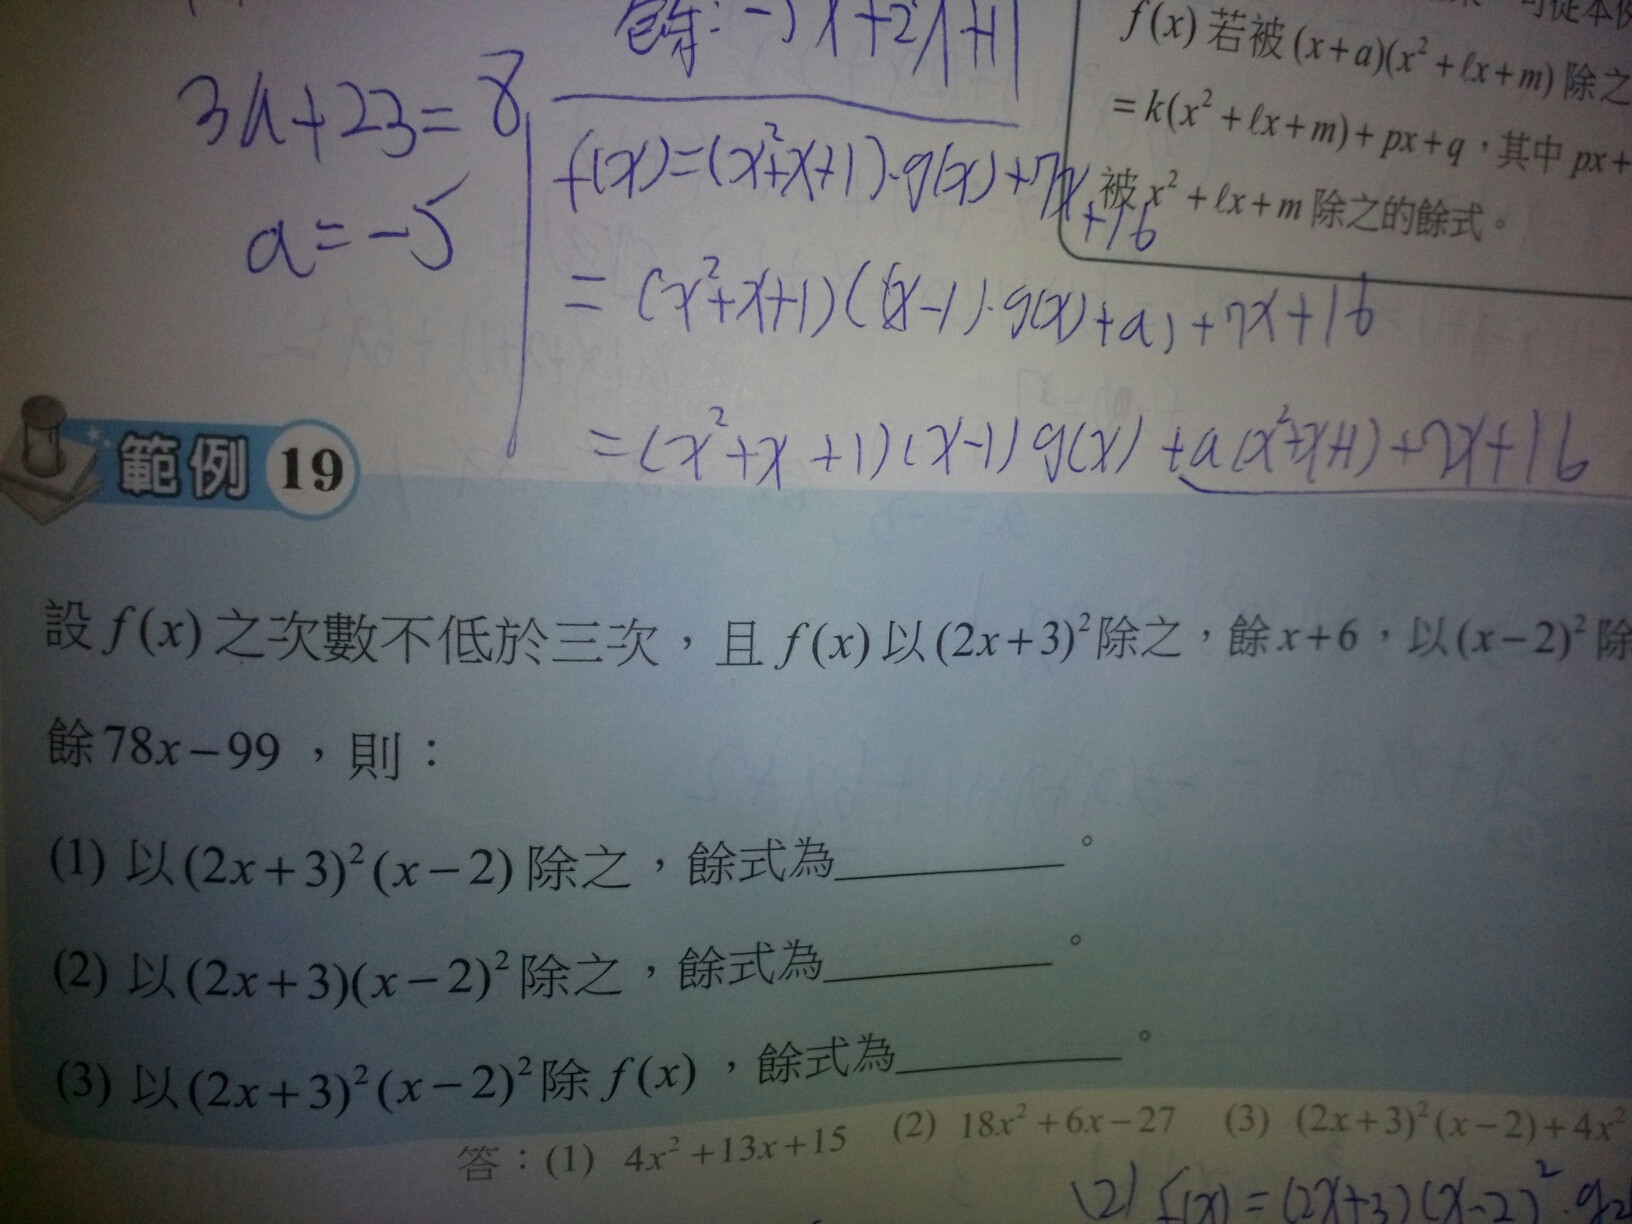 餘:-5x²+2x+11
3a+23=8
a=-5
f(x)=(x²+x+1)·g(x)+7x+16
=(x²+x+1)((x-1)·g(x)+a)+7x+16
=(x²+x+1)(x-1)g(x)+a(x²+x+1)+7x+16
f(x)若被(x+a)(x²+ℓx+m)除之
=k(x²+ℓx+m)+px+q,其中px+
被x²+ℓx+m除之的餘式。
範例 19
設f(x)之次數不低於三次,且f(x)以(2x+3)²除之,餘x+6,以(x-2)²除
餘78x-99,則:
(1) 以(2x+3)²(x-2)除之,餘式為________。
(2) 以(2x+3)(x-2)²除之,餘式為________。
(3) 以(2x+3)²(x-2)²除f(x),餘式為________。
答:(1) 4x²+13x+15 (2) 18x²+6x-27 (3) (2x+3)²(x-2)+4x²
(2) f(x)=(2x+3)(x-2)²·g2